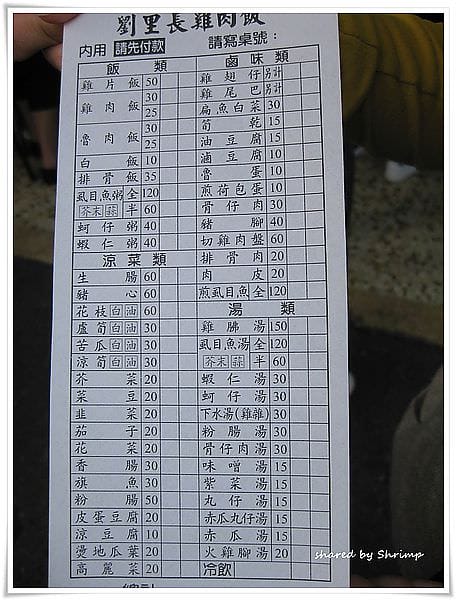 劉里長雞肉飯
內用 請先付款 請寫桌號:
飯類
雞片飯 50
雞肉飯 30
25
魯肉飯 30
25
白飯 10
排骨飯 35
虱目魚粥 全 120
芥末 蒜 半 60
蚵仔粥 40
蝦仁粥 40
涼菜類
生腸 60
豬心 60
花枝 白 油 60
蘆筍 白 油 30
苦瓜 白 油 30
涼筍 白 油 30
芥菜 20
菜豆 20
韭菜 20
茄子 20
花菜 20
香腸 30
旗魚 30
粉腸 50
皮蛋豆腐 20
涼豆腐 10
燙地瓜葉 20
高麗菜 20
滷味類
雞翅仔 另計
雞尾巴 另計
扁魚白菜 30
筍乾 15
油豆腐 15
滷豆腐 10
魯蛋 10
煎荷包蛋 10
骨仔肉 30
豬腳 40
切雞肉盤 60
排骨肉 20
肉皮 20
煎虱目魚 全 120
湯類
雞腿湯 150
虱目魚湯 全 120
芥末 蒜 半 60
蝦仁湯 30
蚵仔湯 30
下水湯(雞雜) 30
粉腸湯 30
骨仔肉湯 30
味噌湯 15
紫菜湯 15
丸仔湯 15
赤瓜丸仔湯 15
赤瓜湯 15
火雞腳湯 20
冷飲
shared by Shrimp